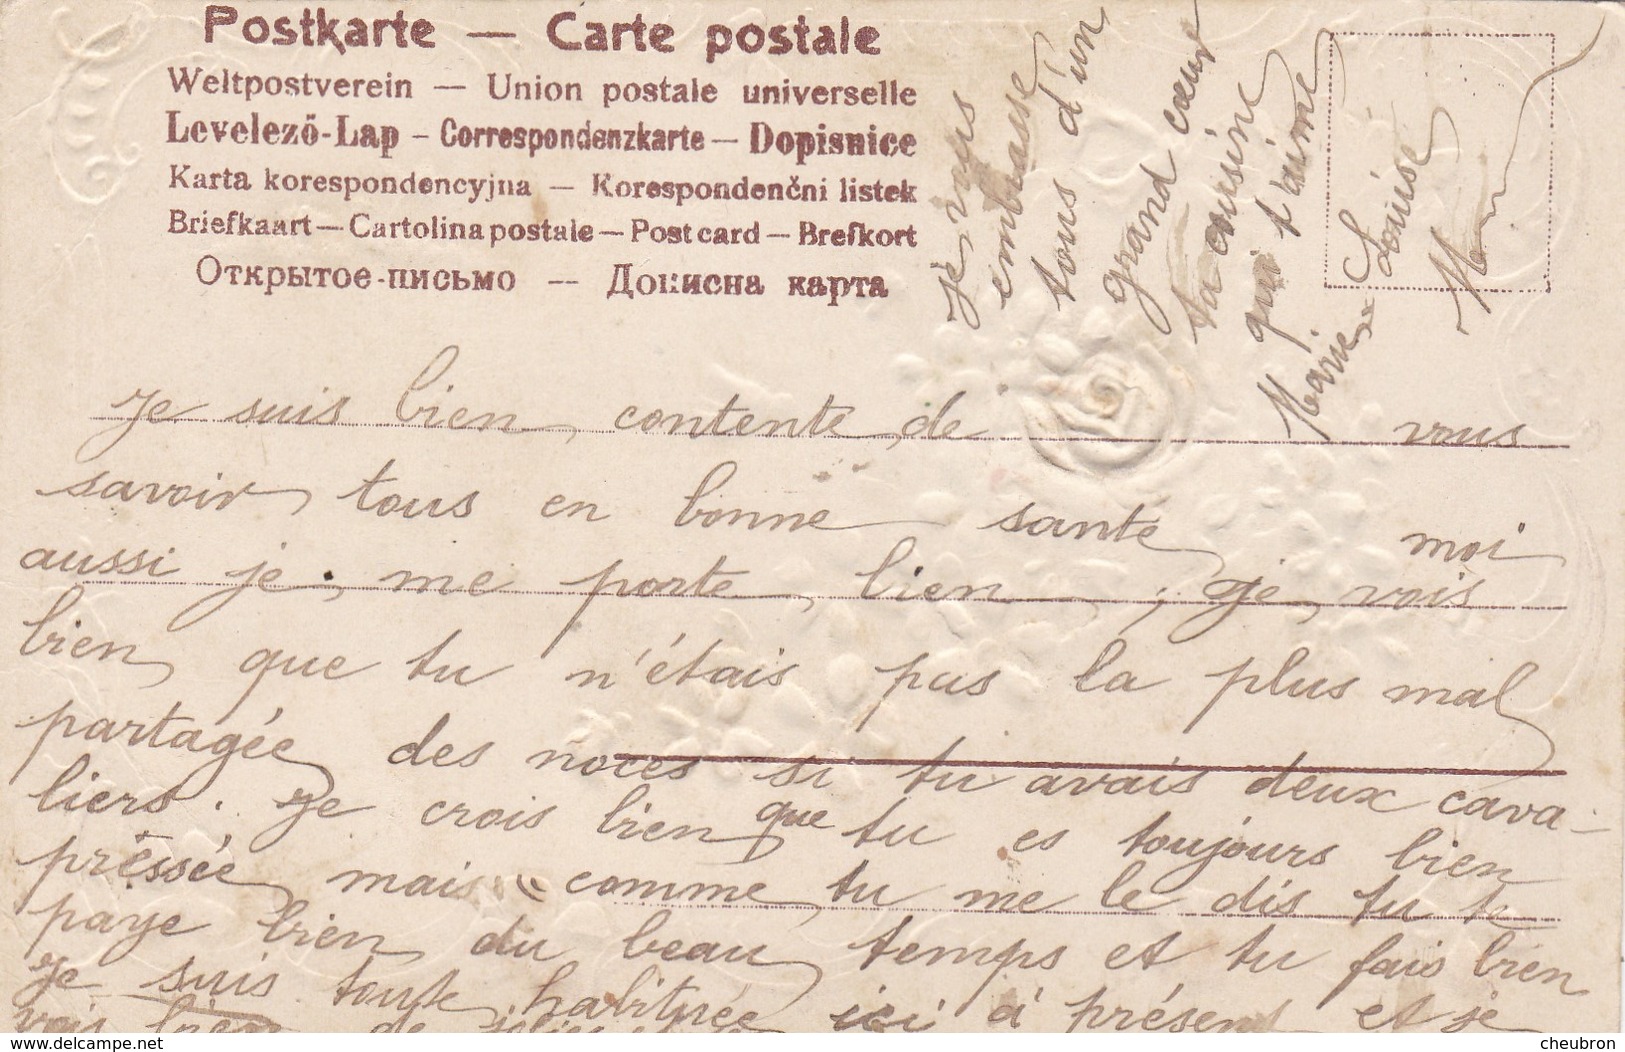 Postkarte — Carte postale
Weltpostverein — Union postale universelle
Levelező-Lap – Correspondenzkarte – Dopisnice
Karta korespondencyjna — Korespondenčni listek
Briefkaart — Cartolina postale — Post card — Brefkort
Открытое-письмо — Дописна карта
je vous
embrasse
tous d'un
grand cœur
ta cousine
qui t'aime
Marie-Louise
je suis bien contente de vous
savoir tous en bonne santé moi
aussi je me porte bien, je vois
bien que tu n'étais pas la plus mal
partagée des noces si tu avais deux cava-
liers. je crois bien que tu es toujours bien
préssée mais comme tu me le dis tu te
paye bien du beau temps et tu fais bien
je suis toute habituée ici à présent et je
vois bien de
© www.delcampe.net
cheubron